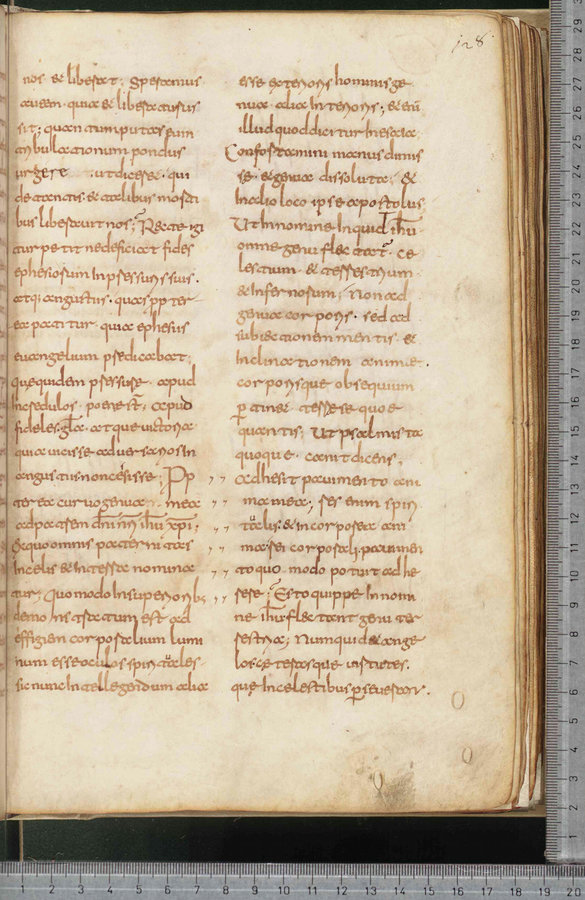 128
nos & liberat; speramus
autem quia & liberaturus
sit; quantum putas eum
tribulationum pondus
urgere ut diceret qui
de tantis & talibus morti
bus liberavit nos; Recte igi
tur petit ne deficiat fides
ephesiorum in pressuris suis
atq; angustiis quas pp ter
ea patitur quia ephesiis
evangelium predicabat
que quidem pressure apud
incredulos poene st; apud
fideles glae atque victoriae
quia vicisse adversarios in
angustiis non cessisse; Pp
terea curvo genua mea
ad patrem dni nri ihu xpi;
ex quo omnis paternitas
in celis & in terra nomina
tur; Quomodo in superiorib;
demonstratum est ad
effigiem corporalium lumi
num esse oculos spiritales
sic nunc intellegendum alia
esse exterioris hominis ge
nua alia interioris; & eu
illud quod dicitur in esaia
Confortamini manus dimis
se & genua dissoluta; &
in alio loco ipse apostolus
Ut in nomine inquid ihu
omne genu flectat. ce
lestium & terrestrium
& infernorum; Non ad
genua corporis sed ad
subiectionem mentis &
inclinationem animae
corporisque obsequium
ptinere terrere quoe
quantis; Ut psalmista
quoque canit dicens
adhesit pavimento ani
ma mea; res enim spiri
talis & incorporea ani
ma rei corporali pavimen
to quo modo potuit adhe
rere; Esto quippe in nomi
ne ihu flectant genu ter
restria; Numquid & ange
los ceterasque virtutes
que in celestibus pseverant.